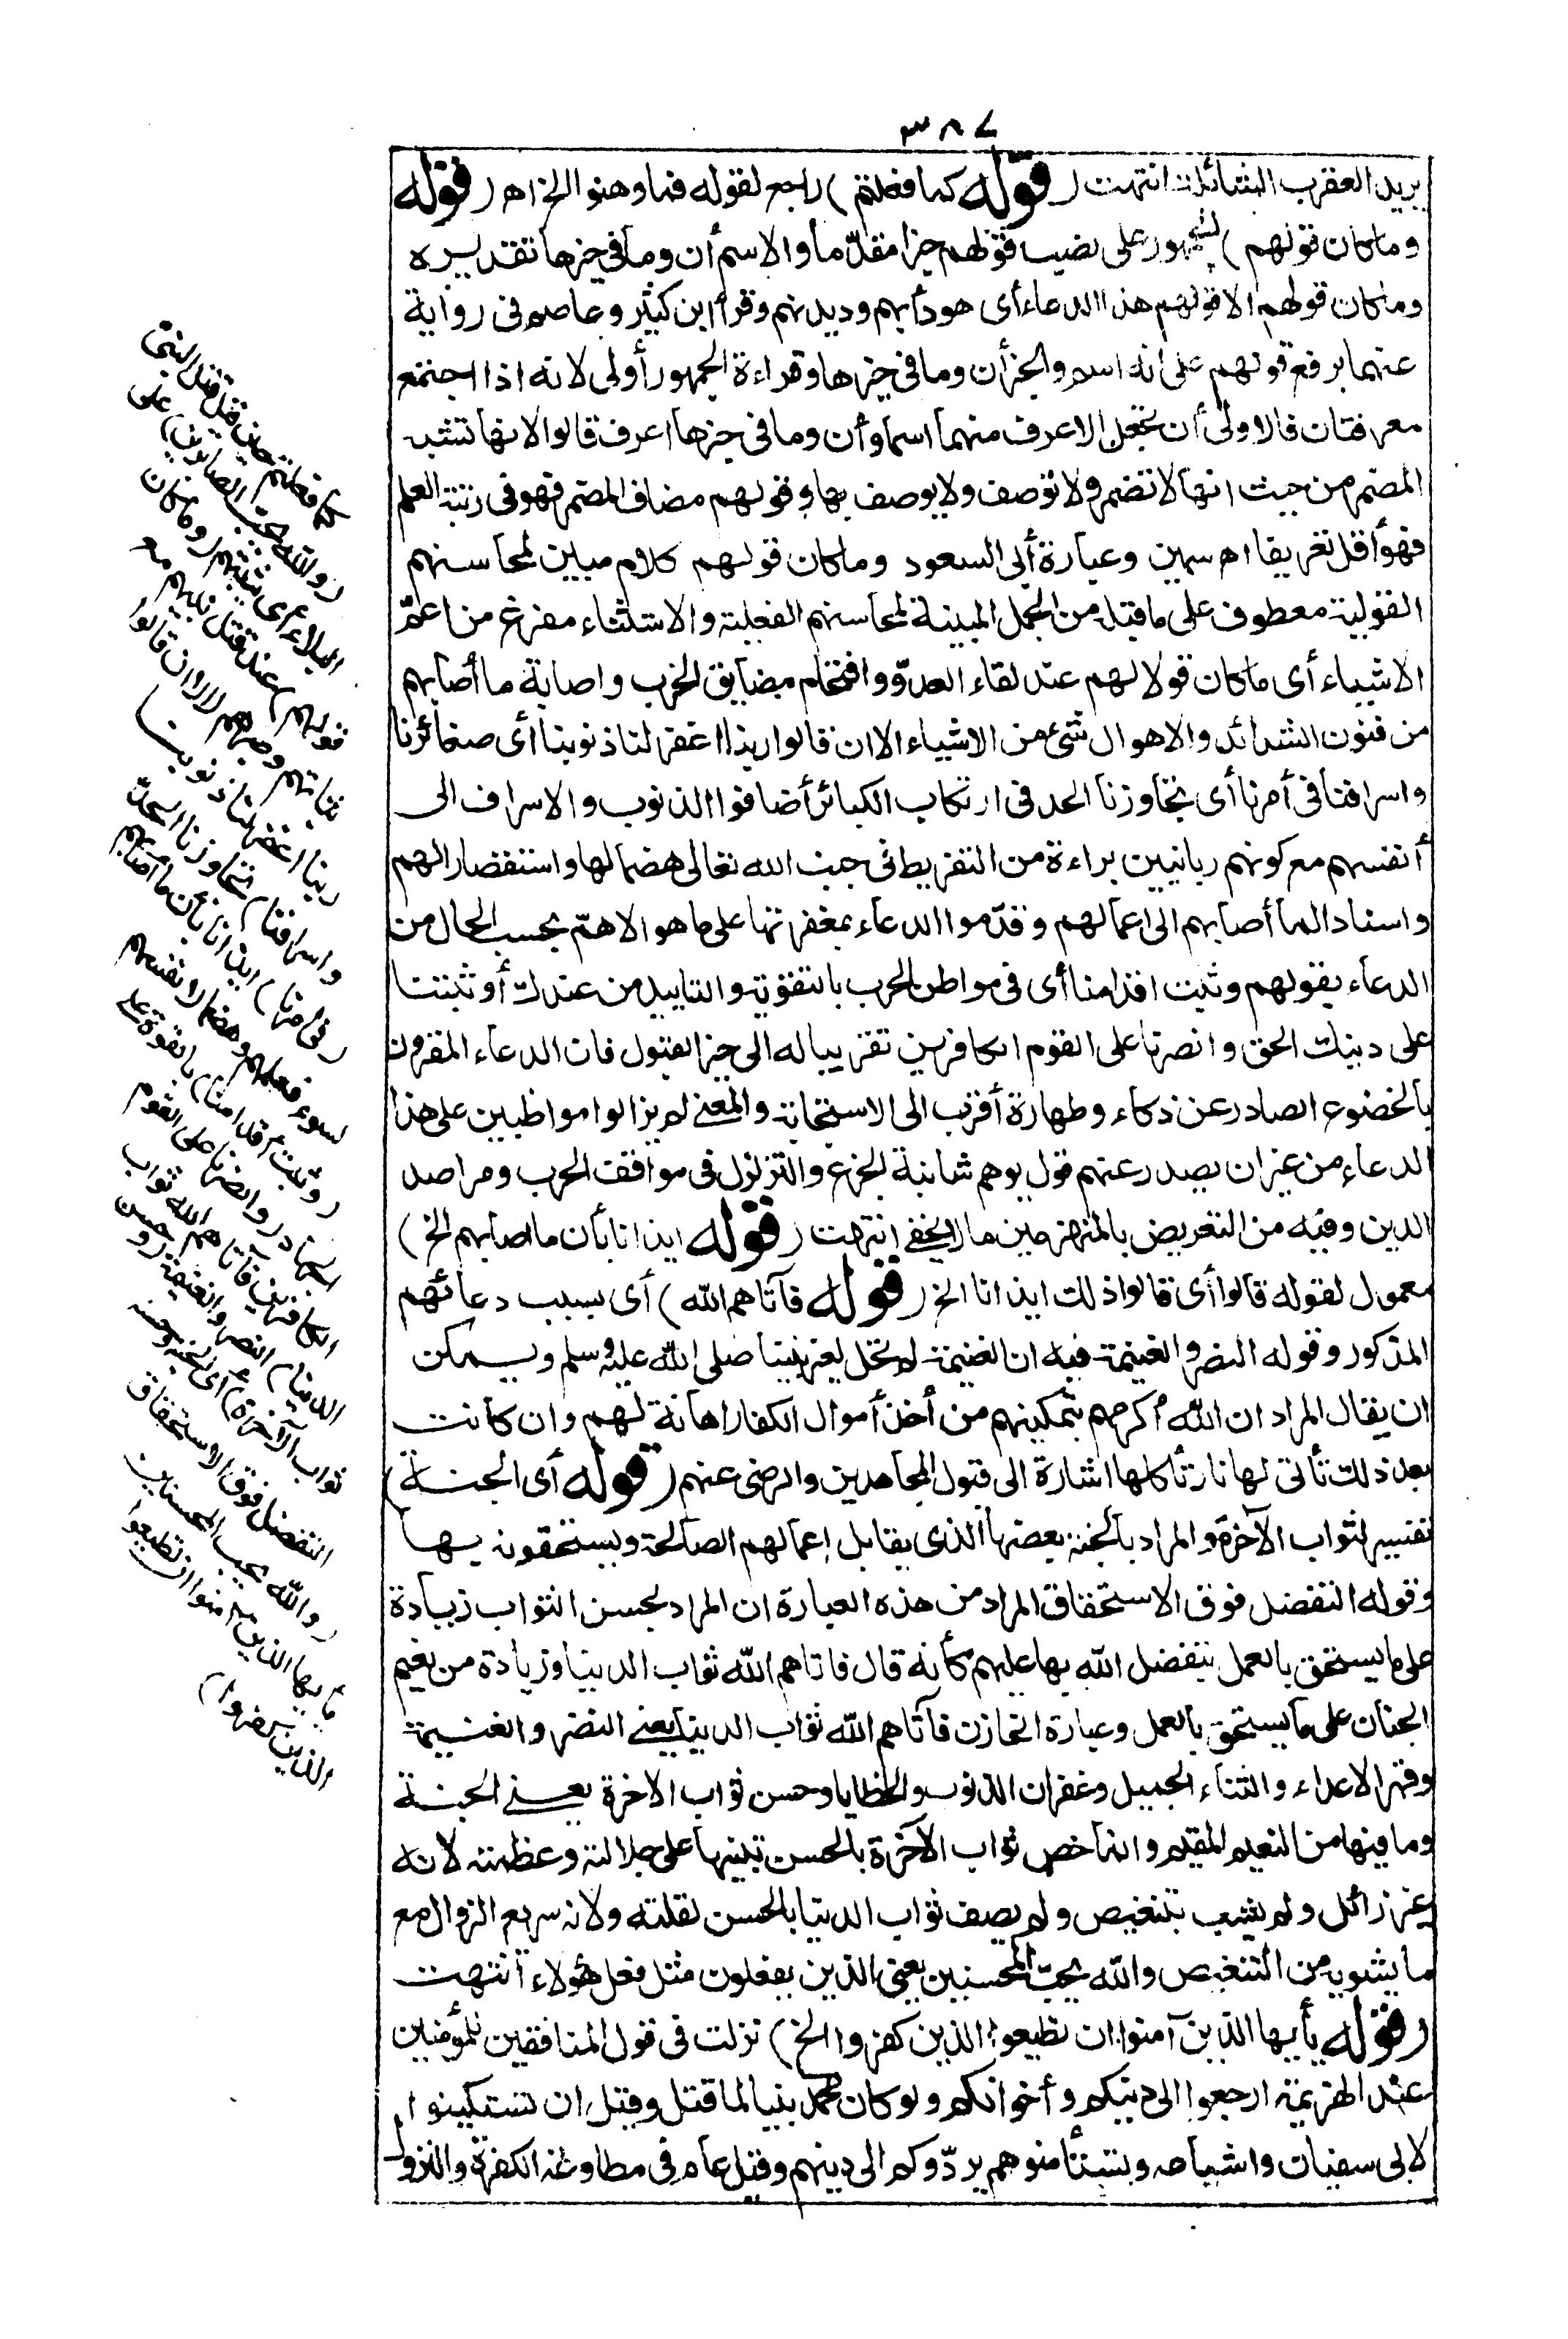 ٣٨٧
يريد العقرب الشائلات انتهت (قوله كما فعلتم) راجع لقوله فما وهنوا الخ اهـ (قوله
وما كان قولهم) الجمهور على نصب قولهم خبرا مقدّما والاسم أن وما في حيزها تقديره
وما كان قولهم الا قولهم هذا الدعاء أى هو دأبهم وديدنهم وقرأ ابن كثير وعاصم فى رواية
عنهما برفع قولهم على انه اسم والخبر أن وما في حيزها وقراءة الجمهور أولى لانه اذا اجتمع
معرفتان فالاولى أن تجعل الاعرف منهما اسما وأن وما فى حيزها اعرف قالوا لانها تشبه
المضمر من حيث انها لا تضمر ولا توصف ولا يوصف بها وقولهم مضاف المضمر فهو فى رتبة العلم
فهو أقل تعريفا اهـ سمين وعبارة أبى السعود وما كان قولهم كلام مبين لمحاسنهم
القولية معطوف على ما قبله من الجمل المبينة لمحاسنهم الفعلية والاستثناء مفرغ من اعمّ
الاشياء أى ما كان قولا لهم عند لقاء العدوّ واقتحام مضايق الحرب واصابة ما أصابهم
من فنون الشدائد والاهوال شئ من الاشياء الا ان قالوا ربنا اغفر لنا ذنوبنا أى صغائرنا
واسرافنا فى أمرنا أى تجاوزنا الحد فى ارتكاب الكبائر أضافوا الذنوب والاسراف الى
أنفسهم مع كونهم ربانيين براءة من التفريط فى جنب الله تعالى هضما لها واستقصارا لهم
واسنادا لما أصابهم الى اعمالهم وقدّموا الدعاء بمغفرتها على ما هو الاهمّ بحسب الحال من
الدعاء بقولهم وثبت اقدامنا أى فى مواطن الحرب بالتقوية والتاييد من عندك أو ثبتنا
على دينك الحق وانصرنا على القوم الكافرين تقريبا له الى حيز القبول فان الدعاء المقرون
بالخضوع الصادر عن ذكاء وطهارة أقرب الى الاستجابة والمعنى لم يزالوا مواظبين على هذا
الدعاء من غير ان يصدر عنهم قول يوهم شائبة الجزع والتزلزل فى مواقف الحرب ومراصد
الدين وفيه من التعريض بالمنهزمين ما لا يخفى انتهت (قوله ايذانا بأن ما اصابهم الخ)
معمول لقوله قالوا أى قالوا ذلك ايذانا الخ (قوله فآتاهم الله) أى بسبب دعائهم
المذكور وقوله النصر والغنيمة فيه ان الغنيمة لم تحل لغير نبينا صلى الله عليه وسلم ويمكن
ان يقال المراد ان الله أكرمهم بتمكينهم من أخذ أموال الكفار اهانة لهم وان كانت
بعد ذلك تأتى لها نار تأكلها اشارة الى قبول المجاهدين والرضى عنهم (قوله أى الجنة)
تفسير لثواب الآخرة والمراد بالجنة بعضها الذى يقابل اعمالهم الصالحة ويستحقونه بها
وقوله التفضل فوق الاستحقاق المراد من هذه العبارة ان المراد بحسن الثواب زيادة
على ما يستحق بالعمل بتفضل الله بها عليهم كأنه قال فاتاهم الله ثواب الدنيا وزيادة من نعيم
الجنان على ما يستحق بالعمل وعبارة الخازن فآتاهم الله ثواب الدنيا يعنى النصر والغنيمة
وقهر الاعداء والثناء الجميل وغفران الذنوب والخطايا وحسن ثواب الاخرة يعنى الجنة
وما فيها من النعيم المقيم وانما خص ثواب الآخرة بالحسن تنبيها على جلالته وعظمته لانه
غير زائل ولم يشب بتنغيص ولم يصف ثواب الدنيا بالحسن لقلته ولانه سريع الزوال مع
ما يشوبه من التنغيص والله يحبّ المحسنين يعنى الذين يفعلون مثل فعل هؤلاء انتهت
(قوله يأيها الذين آمنوا ان تطيعوا الذين كفروا الخ) نزلت فى قول المنافقين للمؤمنين
عند الهزيمة ارجعوا الى دينكم وأخوانكم ولو كان محمد نبيا لما قتل وقيل ان تستكينوا
لابى سفيان واشياعه وتستأمنوهم يردّوكم الى دينهم وقيل عام فى مطاوعة الكفرة والنزول
كما فعلتم حين قيل قتل النبى
(والله يحب الصابرين) على
البلاء أى يثيبهم (وما كان
قولهم) عند قتل نبيهم مع
ثباتهم وصبرهم (الا ان قالوا
ربنا اغفر لنا ذنوبنا
واسرافنا) تجاوزنا الحدّ
(فى أمرنا) ايذانا بأن ما اصابهم
لسوء فعلهم وهضما لانفسهم
(وثبت أقدامنا) بالقوة على
الجهاد (وانصرنا على القوم
الكافرين فآتاهم الله ثواب
الدنيا) النصر والغنيمة (وحسن
ثواب الآخرة) أى الجنة وحسنه
التفضل فوق الاستحقاق
(والله يحب المحسنين
يأيها الذين آمنوا ان تطيعوا
الذين كفروا)